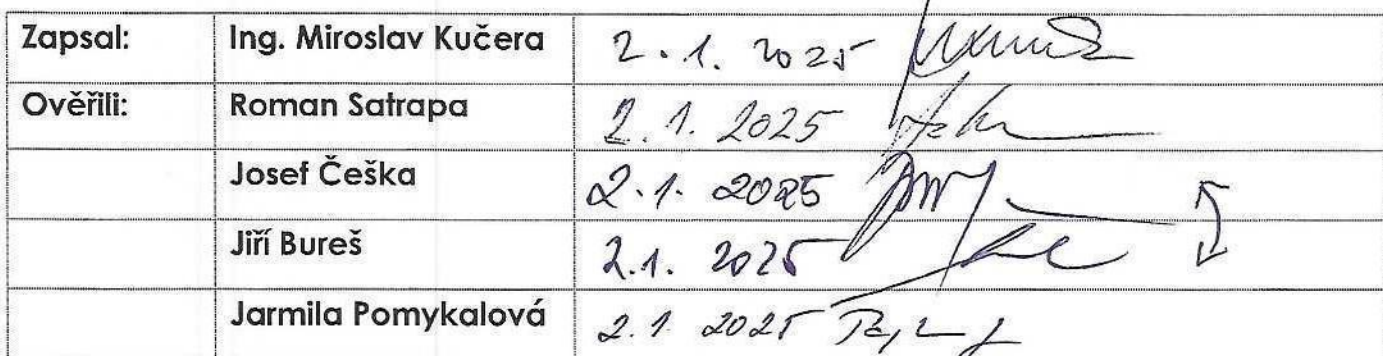 Zapsal: Ing. Miroslav Kučera 2.1. 2025
Ověřili: Roman Satrapa 2.1. 2025
Josef Češka 2.1. 2025
Jiří Bureš 2.1. 2025
Jarmila Pomykalová 2.1 2025